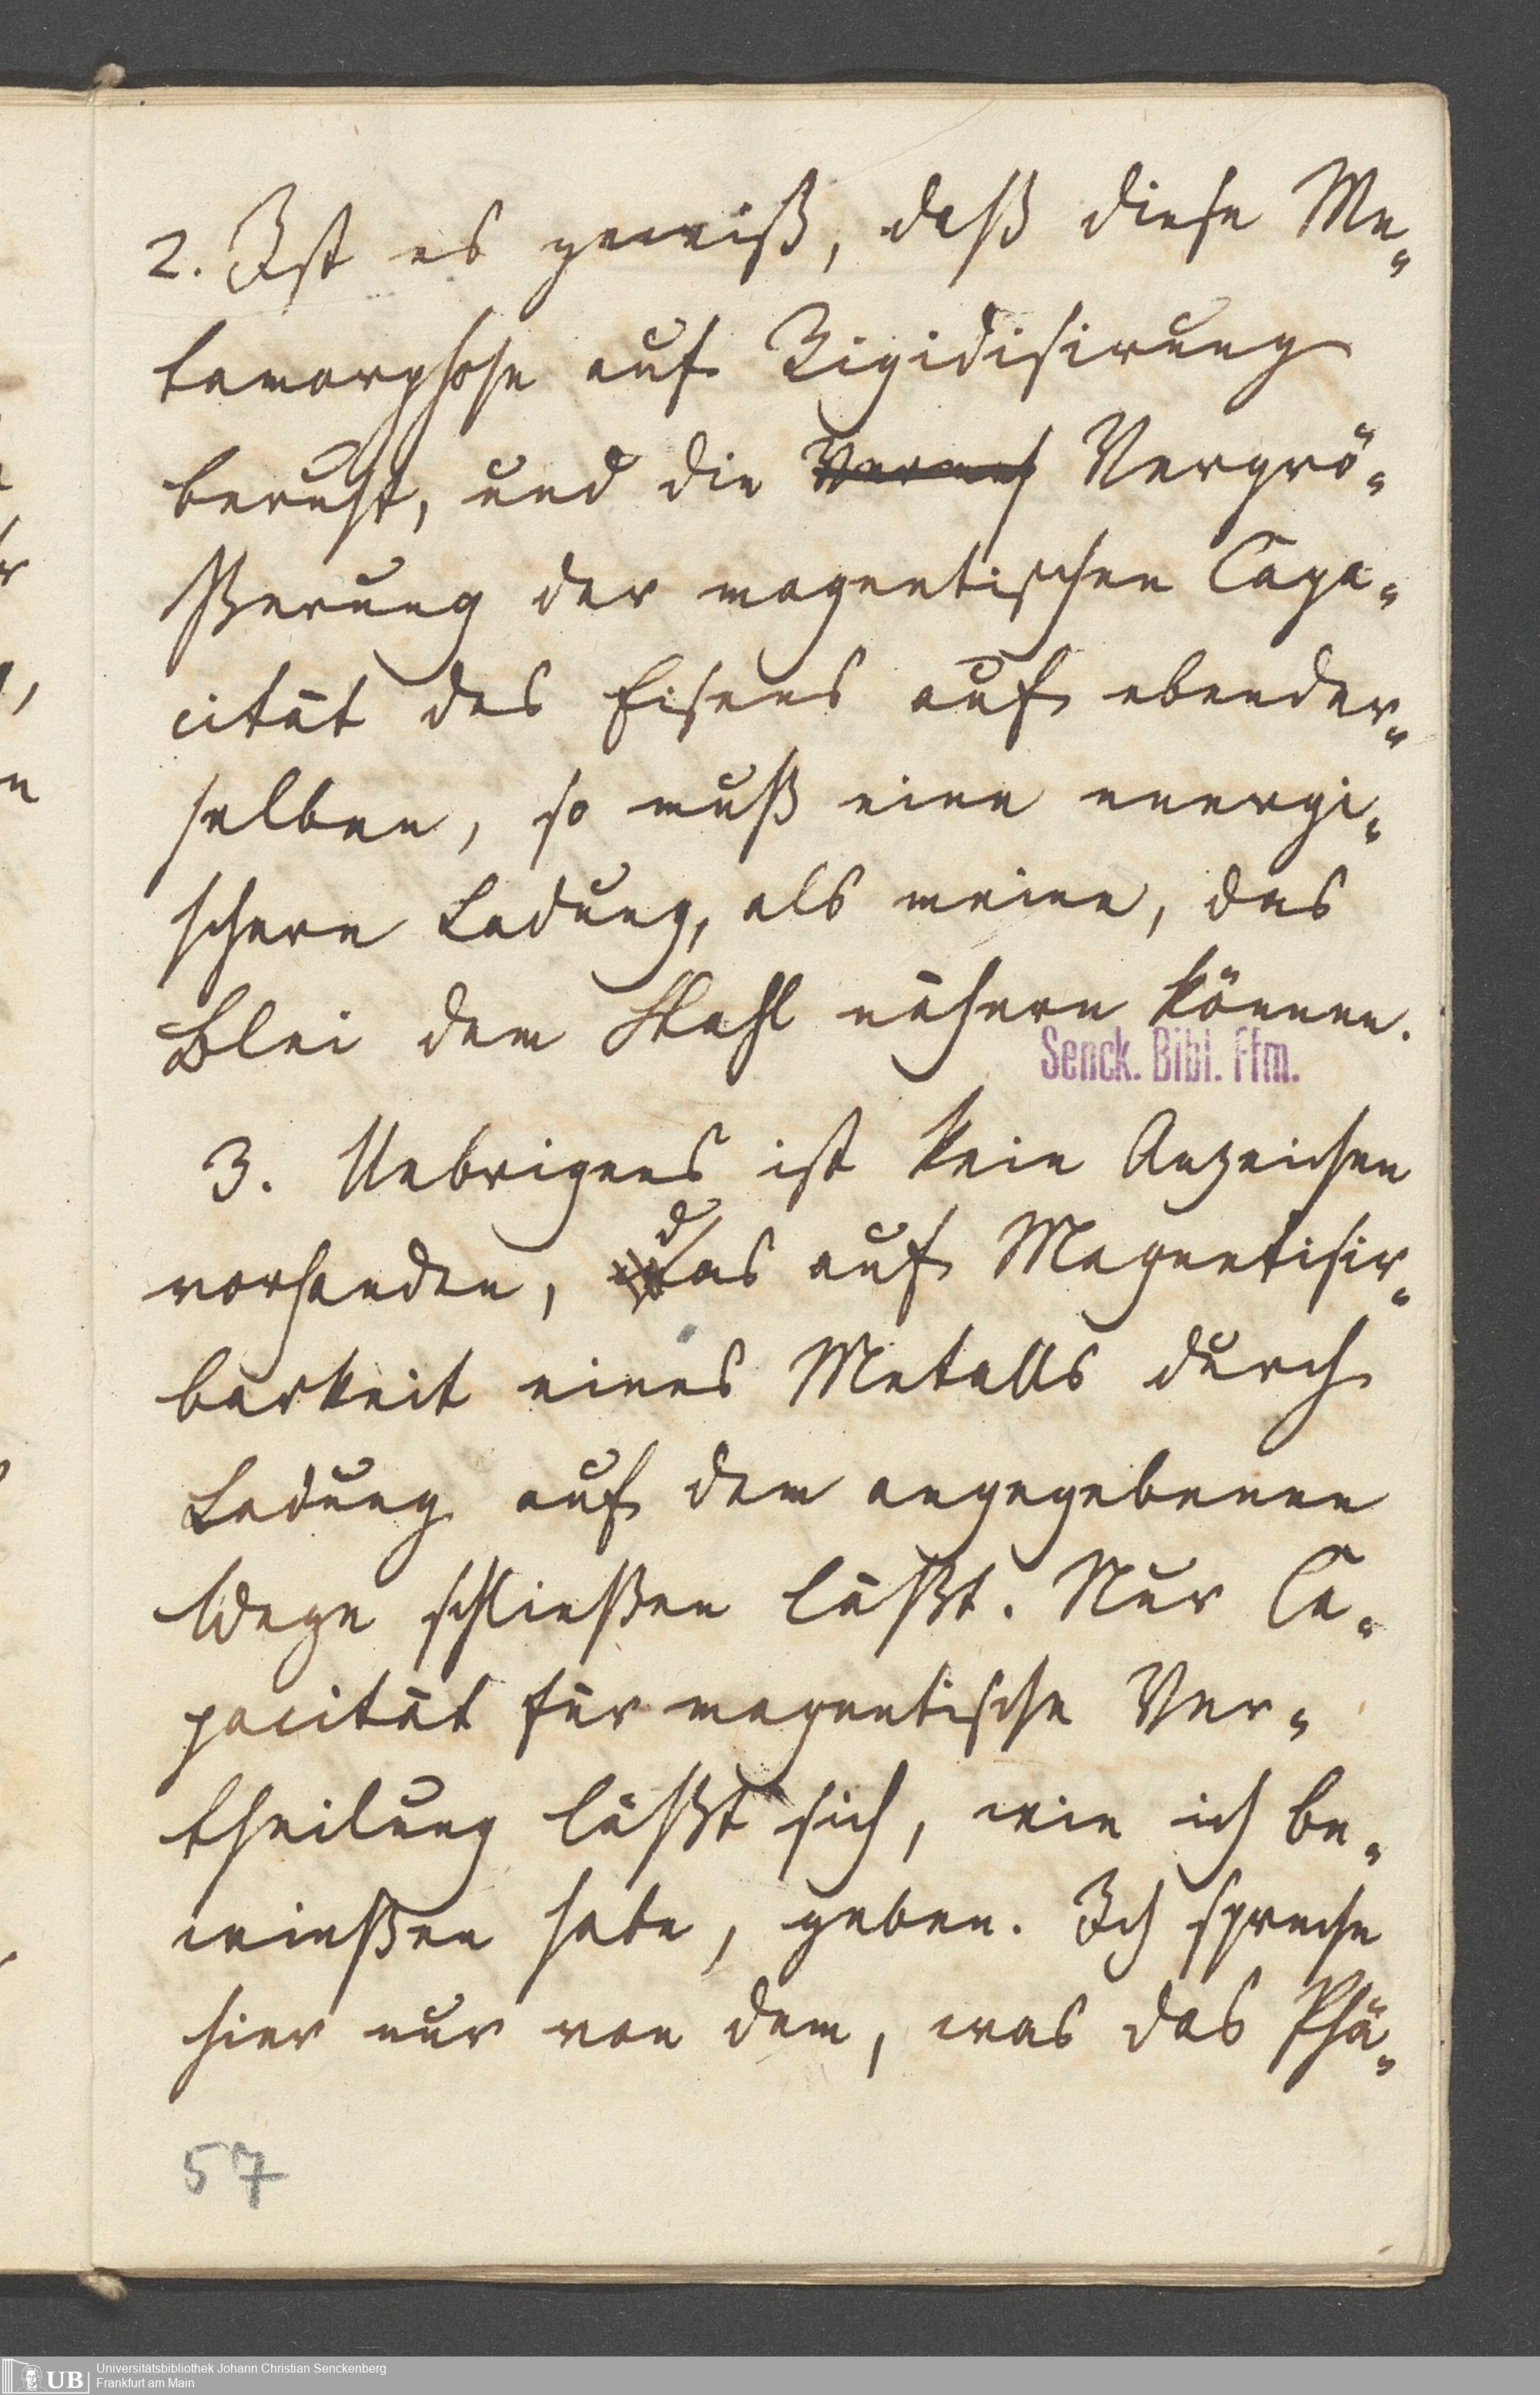 2. Ist es gewiß, daß diese Me-
tamorphose auf Rigidisirung
beruht, und die Vermeh Vergrö-
ßerung der magnetischen Capa-
cität des Eisens auf ebender-
selben, so muß eine energi-
schere Ladung, als meine, das
Blei dem Stahl nähern können.
Senck. Bibl. Ffm.
3. Uebrigens ist kein Anzeichen
vorhanden, das auf Magnetisir-
barkeit eines Metalls durch
Ladung auf dem angegebenen
Wege schließen läßt. Nur Ca-
pacität für magnetische Ver-
theilung läßt sich, wie ich be-
wießen habe, geben. Ich spreche
hier nur von dem, was das Phä-
57
UB
Universitätsbibliothek Johann Christian Senckenberg
Frankfurt am Main